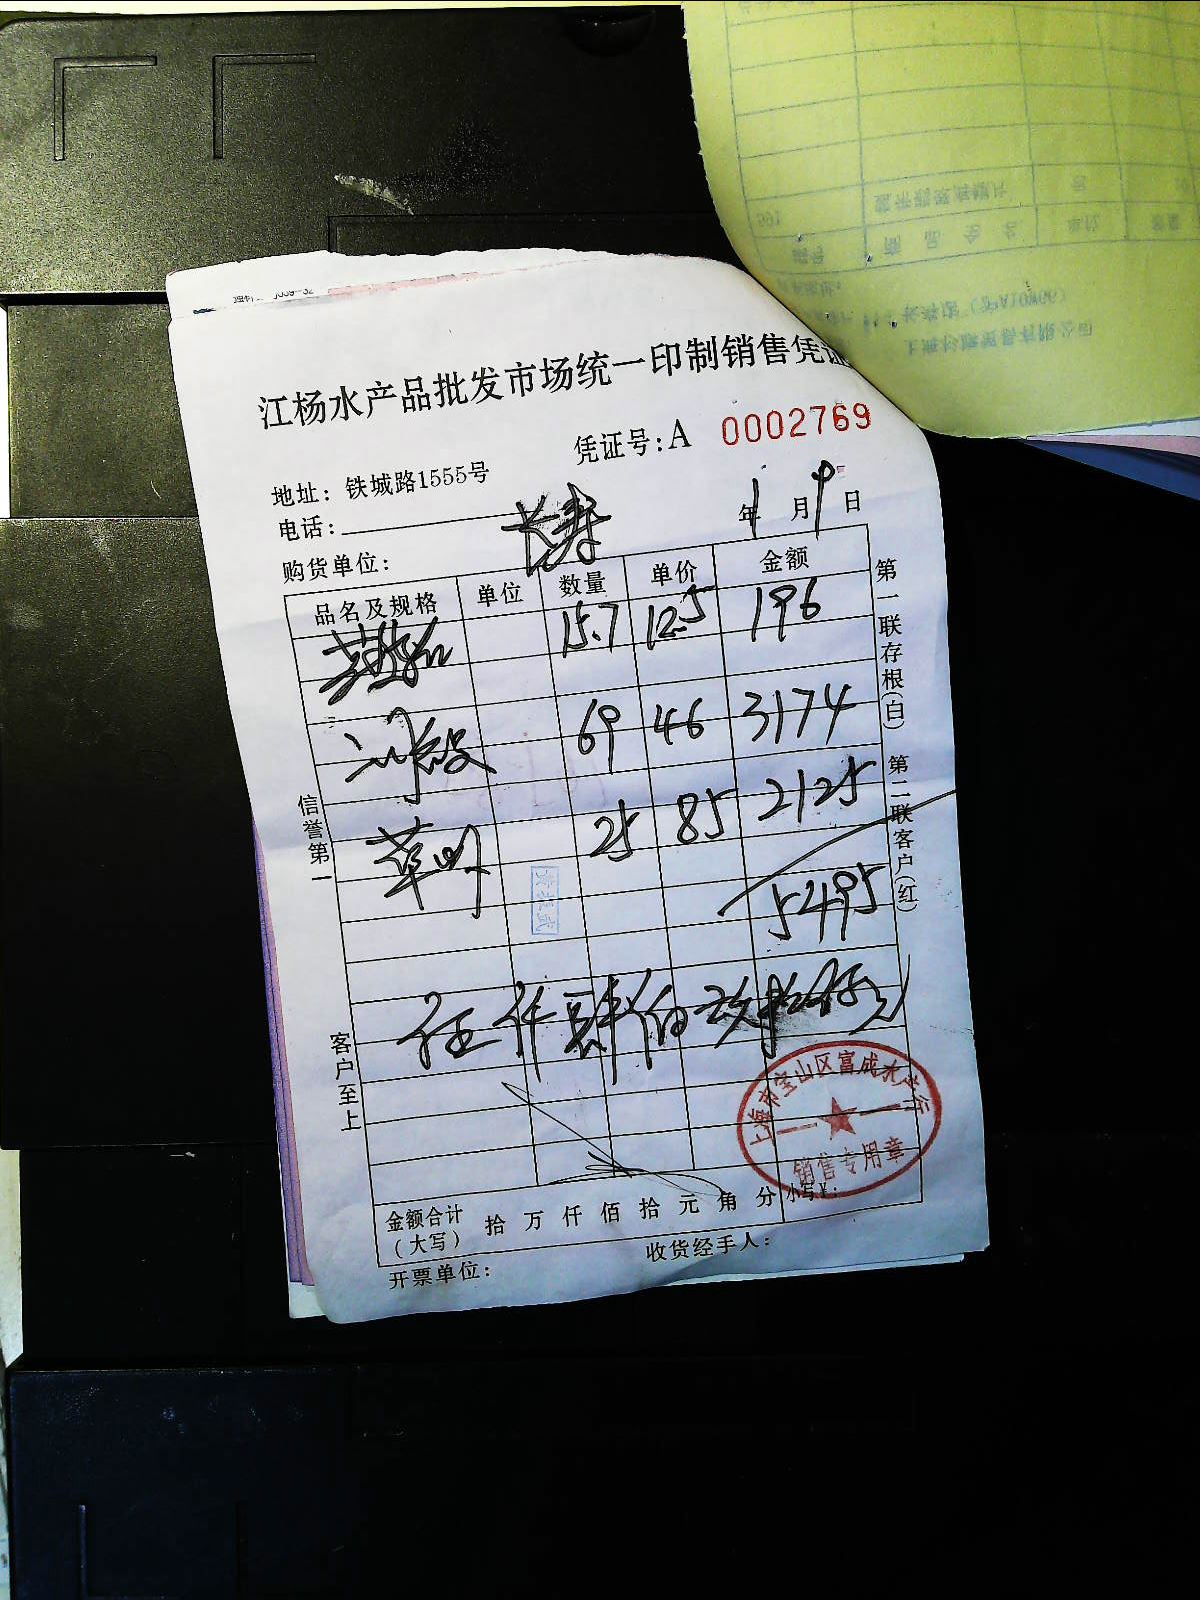 江杨水产品批发市场统一印制销售凭证
凭证号:A 0002769
地址: 铁城路1555号
电话:
购货单位: 长寿
年 1 月 9 日
品名及规格 单位 数量 单价 金额
15.7 12.5 196
69 46 3174
草虾 25 85 2125
5495
伍仟肆佰玖拾伍元
金额合计(大写) 拾 万 仟 佰 拾 元 角 分 小写¥:
开票单位: 收货经手人:
信誉第一
客户至上
第一联存根(白) 第二联客户(红)
上海市宝山区富成水产行
销售专用章
上海杉德贸易有限公司
编号 商品全名 单位 数量